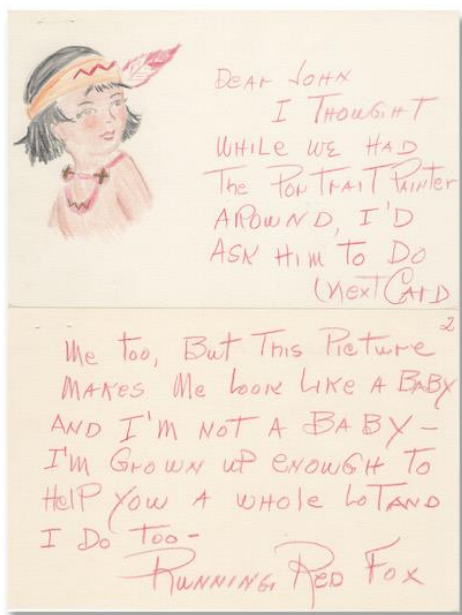 Dear John
I Thought
while we had
The Portrait Painter
around, I'd
ask him to do
(next card
2
me too, But This Picture
makes me look like a Baby
and I'm not a Baby-
I'm grown up enough to
help you a whole lot and
I do too-
Running Red Fox